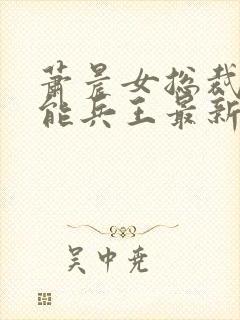 萧晨女总裁
能兵王最新
吴中尧